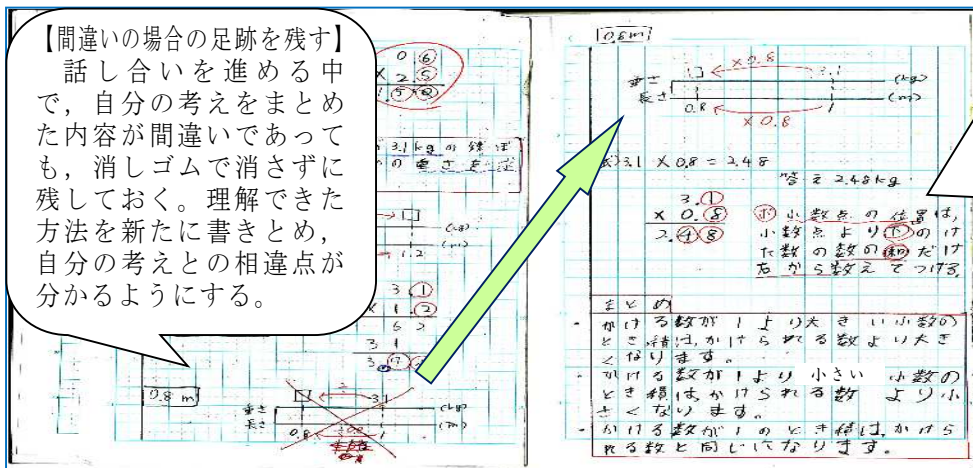 【間違いの場合の足跡を残す】
話し合いを進める中
で，自分の考えをまとめ
た内容が間違いであって
も，消しゴムで消さずに
残しておく。理解できた
方法を新たに書きとめ，
自分の考えとの相違点が
分かるようにする。
0.6
× 2.5
1 5 0
3.1kg の
の 重さ
→ □
(kg)
(m)
1.2
3.1
× 1.2
6 2
3 1
3.7
0.8 m
□ 3.1
重さ (kg)
長さ (m)
0.8 1
0.8m
×0.8
□ 3.1
重さ (kg)
長さ (m)
0.8 1
×0.8
式) 3.1 × 0.8 = 2.48
答え 2.48kg
3.1
× 0.8
2.48
ポ 小数点の位置は,
小数点より下のけ
た数の数の和だけ
右から数えてつける。
まとめ
・かける数が1より大きい小数の
とき積は,かけられる数より大き
くなります。
・かける数が1より小さい 小数の
とき積はかけられる数 より小
さくなります。
・かける数が1のとき積は,かけら
れる数と同じになります。